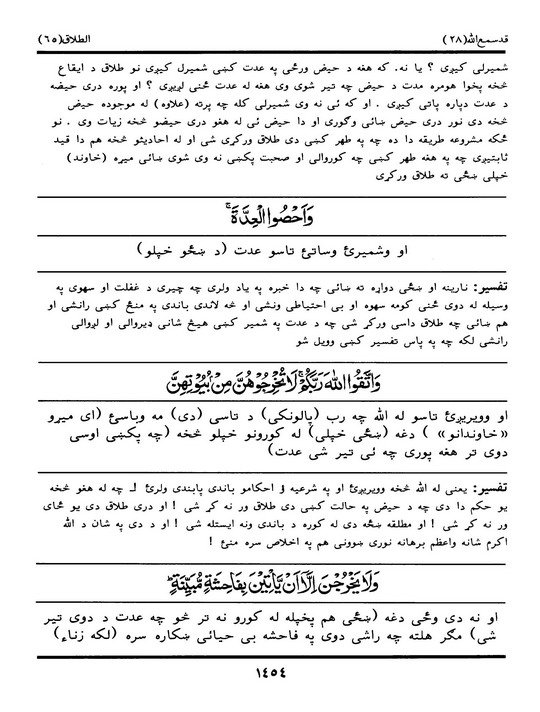 قدسمع‌الله(٢٨)
الطلاق(٦٥)
شمیرلی کیږی ؟ یا نه. که هغه د حیض ورځی په عدت کښی شمیرل کیږی نو طلاق د ایقاع
څخه پخوا هومره مدت د حیض چه تیر شوی وی هغه له عدت ځنی لږیږی ؟ او پوره دری حیضه
د عدت دپاره پاتی کیږی . او که ئی نه وی شمیرلی کله چه پرته (علاوه) له موجوده حیض
څخه دی نور دری حیض ښائی وګوری او دا حیض ئی له هغو دری حیضو څخه زیات وی . نو
ځکه مشروعه طریقه دا ده چه په طهر کښی دی طلاق ورکړی شی او له احادیثو څخه هم دا قید
ثابتیږی چه په هغه طهر کښی چه کوروالی او صحبت پکښی نه وی شوی ښائی میړه (خاوند)
خپلی ښځی ته طلاق ورکړی
وَاَحْصُوا الْعِدَّةَ ۚ
او وشمیرئ وساتئ تاسو عدت (د ښځو خپلو)
تفسیر: نارینه او ښځی دواړه ته ښائی چه دا خبره په یاد ولری چه چیری د غفلت او سهوی په
وسیله له دوی ځنی کومه سهوه او بی احتیاطی ونشی او څه لاندی باندی په منځ کښی رانشی او
هم ښائی چه طلاق داسی ورکړ شی چه د عدت په شمیر کښی هیڅ شانی ډیروالی او لږوالی
رانشی لکه چه په پاس تفسیر کښی وویل شو
وَاتَّقُوا اللّٰهَ رَبَّكُمْ ۚ لَا تُخْرِجُوْهُنَّ مِنْ بُيُوْتِهِنَّ
او وویریږئ تاسو له الله چه رب (پالونکی) د تاسی (دی) مه وباسئ (ای میړو
«خاوندانو» ) دغه (ښځی خپلی) له کورونو خپلو څخه (چه پکښی اوسی
دوی تر هغه پوری چه ئی تیر شی عدت)
تفسیر: یعنی له الله څخه وویریږئ او په شرعیه ؤ احکامو باندی پابندی ولرئ لـ چه له هغو څخه
یو حکم دا دی چه د حیض په حالت کښی دی طلاق ور نه کړ شی ! او دری طلاق دی یو ځای
ور نه کړ شی ! او مطلقه ښځه دی له کوره د باندی ونه ایستله شی ! او د دی په شان د الله
اکرم شانه واعظم برهانه نوری ښوونی هم په اخلاص سره منئ !
وَلَا يَخْرُجْنَ اِلَّا اَنْ يَّاْتِيْنَ بِفَاحِشَةٍ مُّبَيِّنَةٍ ؕ
او نه دی وځی دغه (ښځی هم پخپله له کورو نه تر څو چه عدت د دوی تیر
شی) مګر هلته چه راشی دوی په فاحشه بی حیائی ښکاره سره (لکه زناء)
١٤٥٤